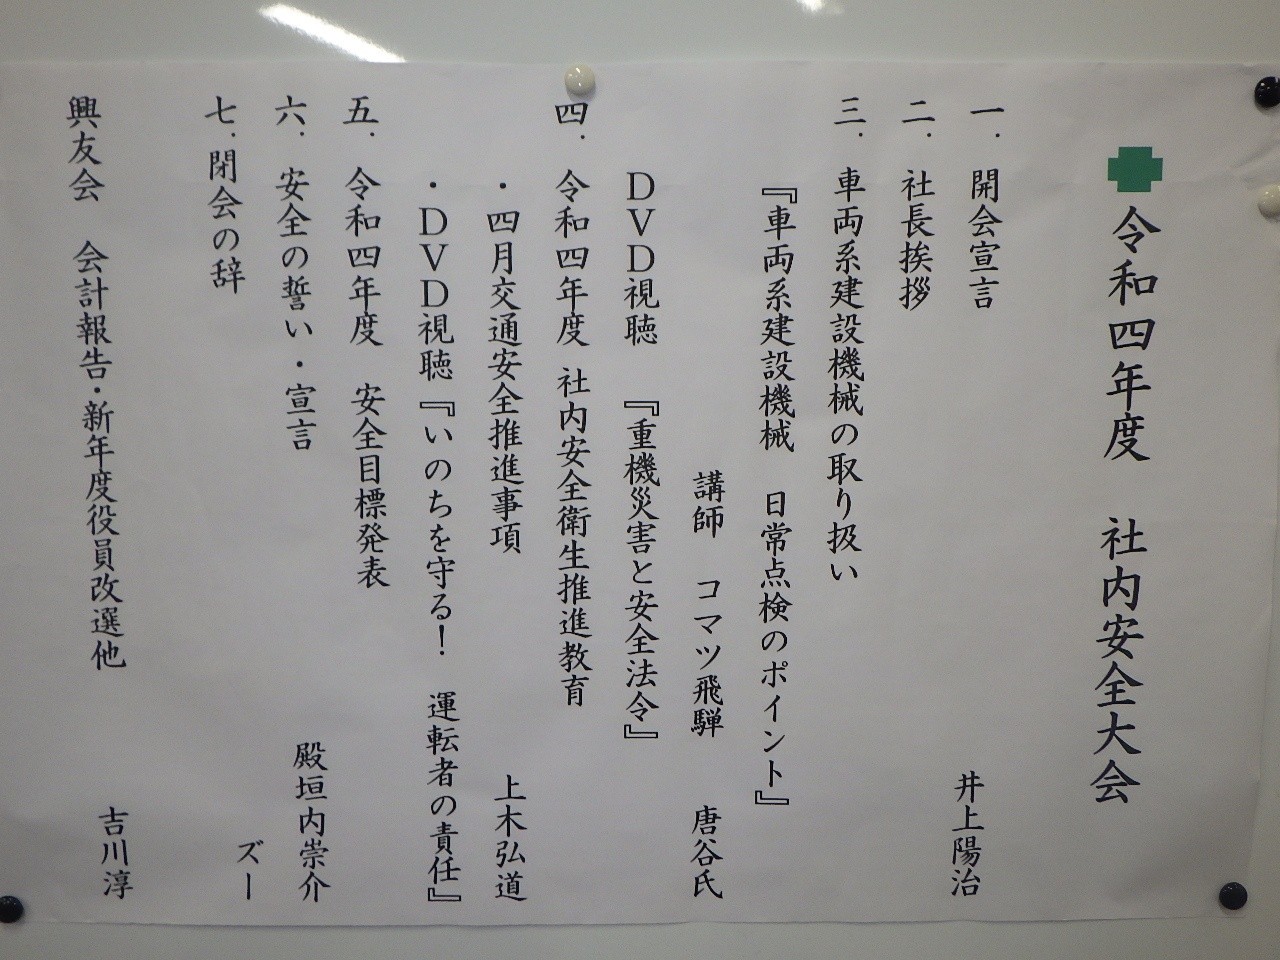 令和四年度 社内安全大会
一. 開会宣言 井上陽治
二. 社長挨拶
三. 車両系建設機械の取り扱い
『車両系建設機械 日常点検のポイント』
講師 コマツ飛騨 唐谷氏
DVD視聴 『重機災害と安全法令』
四. 令和四年度 社内安全衛生推進教育
・四月交通安全推進事項 上木弘道
・DVD視聴『いのちを守る! 運転者の責任』
五. 令和四年度 安全目標発表
六. 安全の誓い・宣言 殿垣内崇介
七. 閉会の辞 ズー
興友会 会計報告・新年度役員改選他 吉川淳